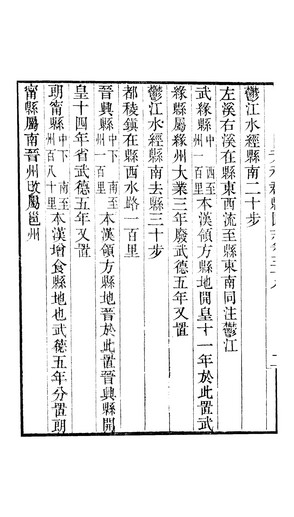 鬱江水經縣南二十步
左溪右溪在縣東西流至縣東南同注鬱江
武緣縣中下西南至州一百里本漢領方縣地開皇十一年於此置武
緣縣屬緣州大業三年廢武德五年又置
鬱江水經縣南去縣三十步
都稜鎮在縣西水路一百里
晉興縣中下南至州一百里本漢領方縣地晉於此置晉興縣開
皇十四年省武德五年又置
朗甯縣中下南至州一百八十里本漢增食縣地也武德五年分置朗
甯縣屬南晉州改屬邕州